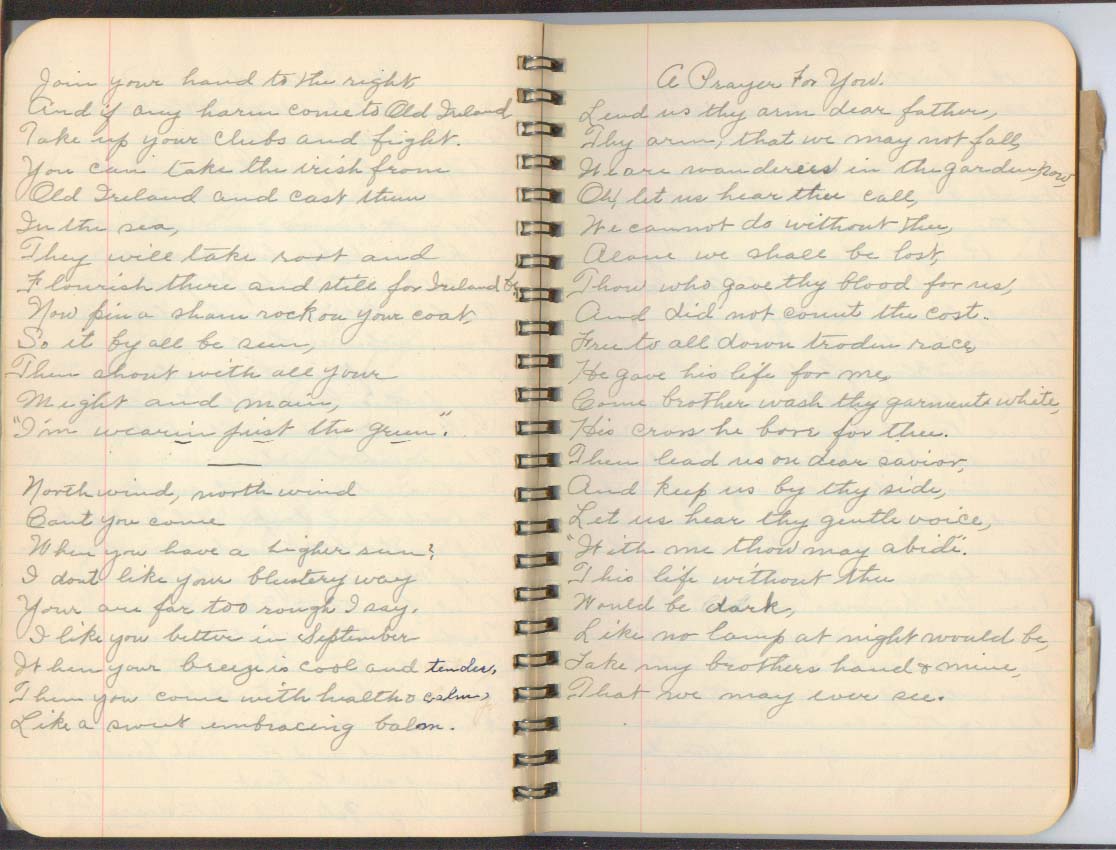 Join your hand to the right
And if any harm come to Old Ireland
Take up your clubs and fight.
You can take the irish from
Old Ireland and cast them
In the sea,
They will take root and
Flourish there and still for Ireland be,
Now pin a sham rock on your coat,
So it by all be seen,
Then shout with all your
Might and main,
"I'm wearin just the green."
North wind, north wind
Cant you come
When you have a higher sun?
I dont like your blustery way
Your are far too rough I say.
I like you better in September
When your breeze is cool and tender,
Then you come with health & calm,
Like a sweet embracing balm.
A Prayer For You.
Lend us thy arm dear father,
Thy arm, that we may not fall,
We are wanderers in the garden now,
Oh, let us hear thee call,
We cannot do without thee,
Alone we shall be lost,
Thow who gave thy blood for us,
And did not count the cost.
Free to all down troden race,
He gave his life for me,
Come brother wash thy garments white,
His cross he bore for thee.
Then lead us on dear savior,
And keep us by thy side,
Let us hear thy gentle voice,
"With me thow may abide".
This life without thee
Would be dark,
Like no lamp at night would be,
Take my brothers hand & mine,
That we may ever see.